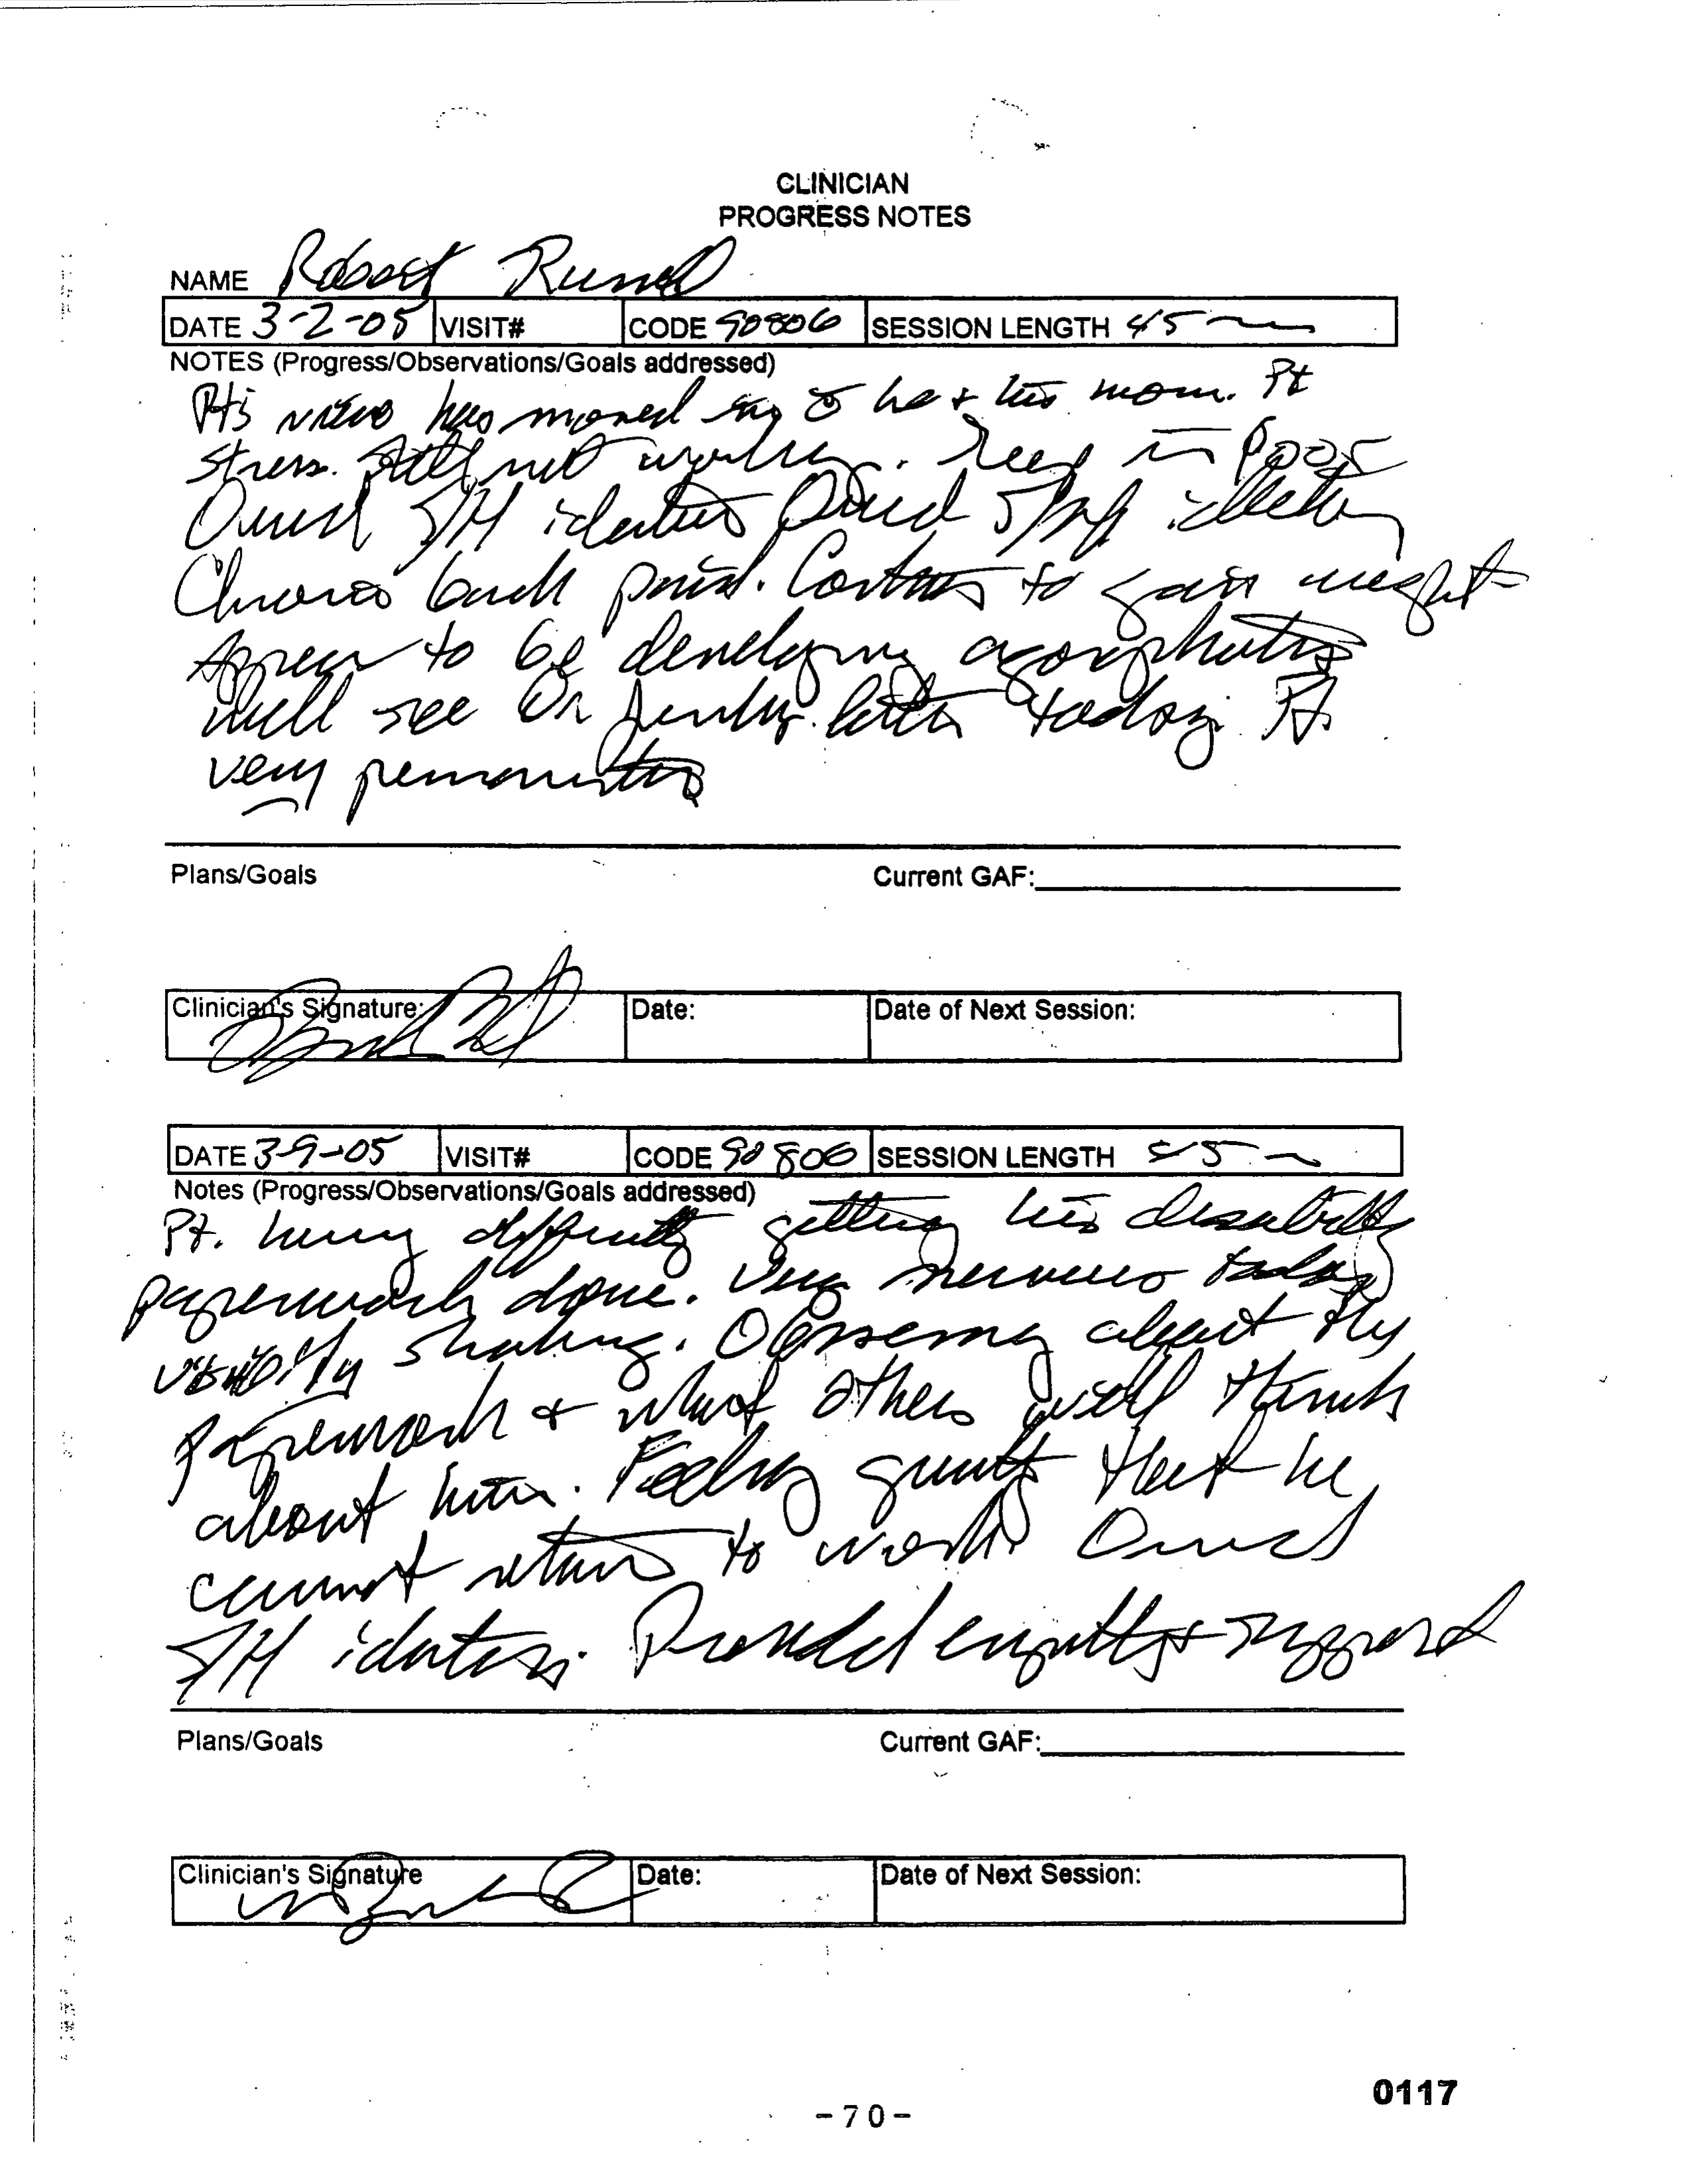 CLINICIAN
PROGRESS NOTES
NAME Robert
DATE 3-2-05 VISIT# CODE 90806 SESSION LENGTH 45
NOTES (Progress/Observations/Goals addressed)
Pt's has moved he + his mom. Pt
stress. Still not working. Sleep is poor
Denied S/H ideation Denied S/H ideation
Chronic back pain. Continues to gain weight
Appears to be developing agoraphobia
Will see Dr later today. Pt
very pessimistic
Plans/Goals Current GAF:
Clinician's Signature: Date: Date of Next Session:
DATE 3-9-05 VISIT# CODE 90806 SESSION LENGTH 45
Notes (Progress/Observations/Goals addressed)
Pt. having difficulty getting his disability
paperwork done. Very nervous today
visibly shaking. Obsessing about the
paperwork + what others will think
about him. Feeling guilty that he
cannot return to work. Denied
S/H ideation. Provided empathy + support
Plans/Goals Current GAF:
Clinician's Signature Date: Date of Next Session:
0117
-70-